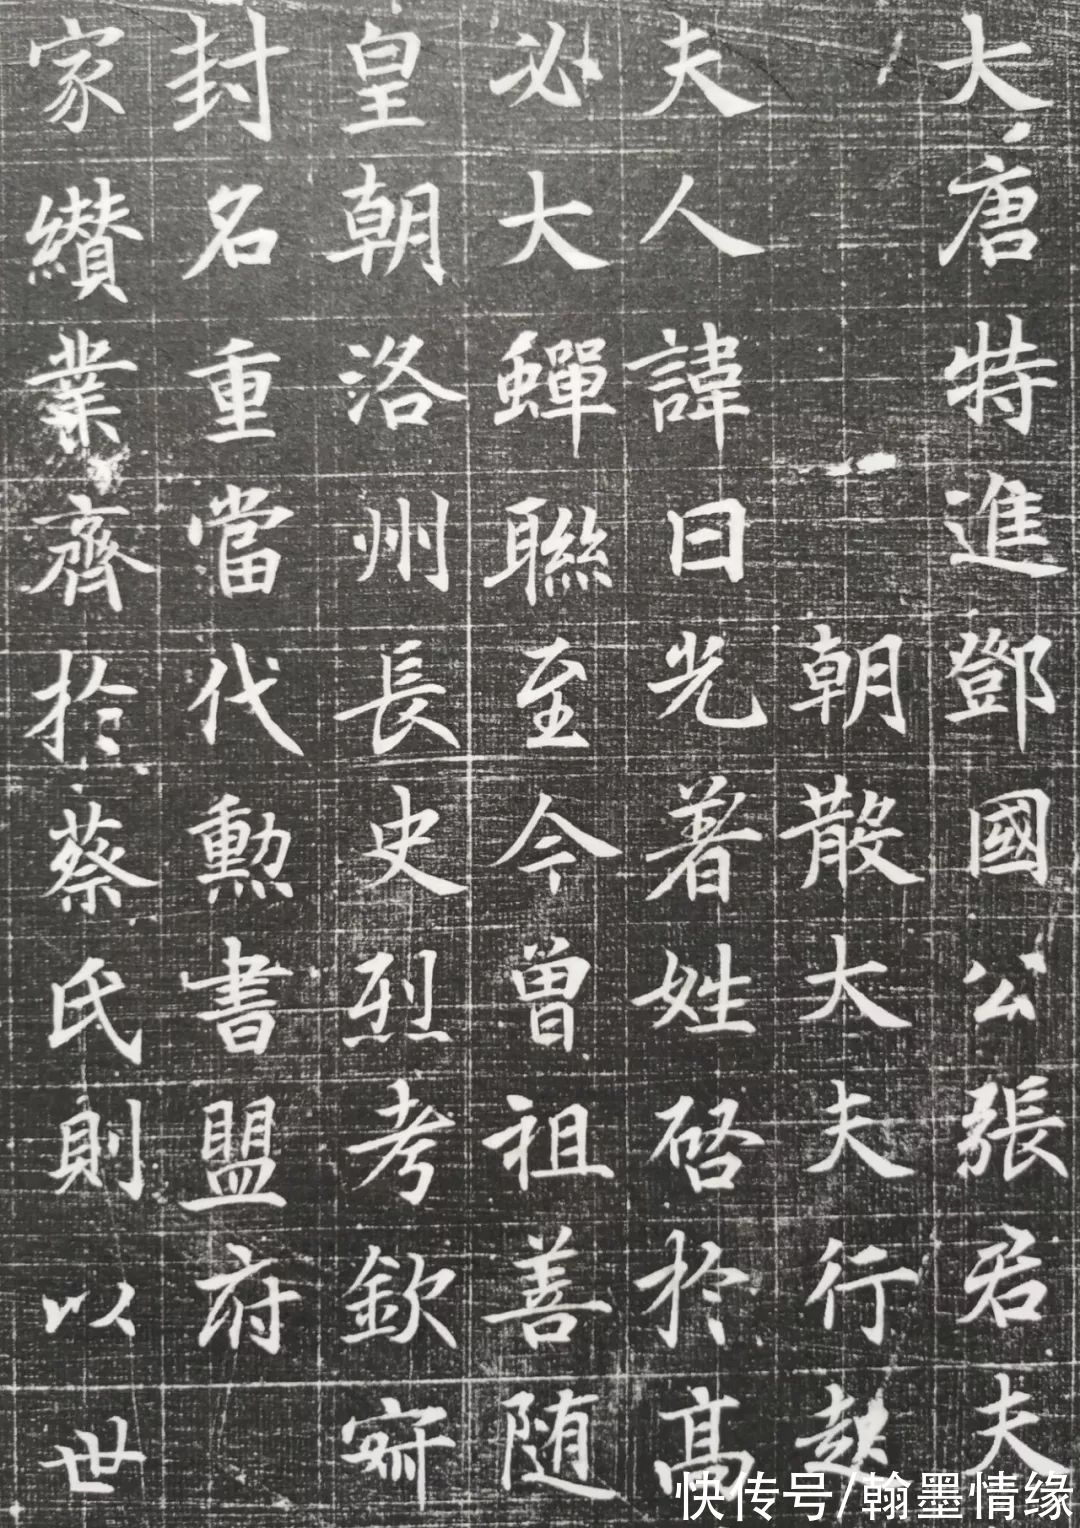 大唐特進鄧國公張君夫
朝散大夫行趙
夫人諱日光著姓啓於高
必大蟬聯至今曾祖善随
皇朝洛州長史烈考欽
封名重當代勲書盟府
家纉業齊於蔡氏則以世
快传号/翰墨情缘